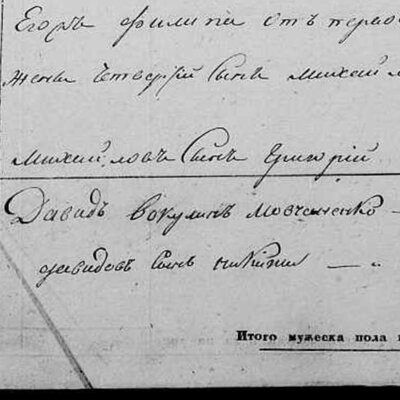 Егоръ Филипа отъ перво
жены четвертый сынъ Михайл
Михайловъ сынъ Григорій
Давидъ Вокулинъ Мовчаненко —
Давидовъ сынъ —
Итого мужеска пола